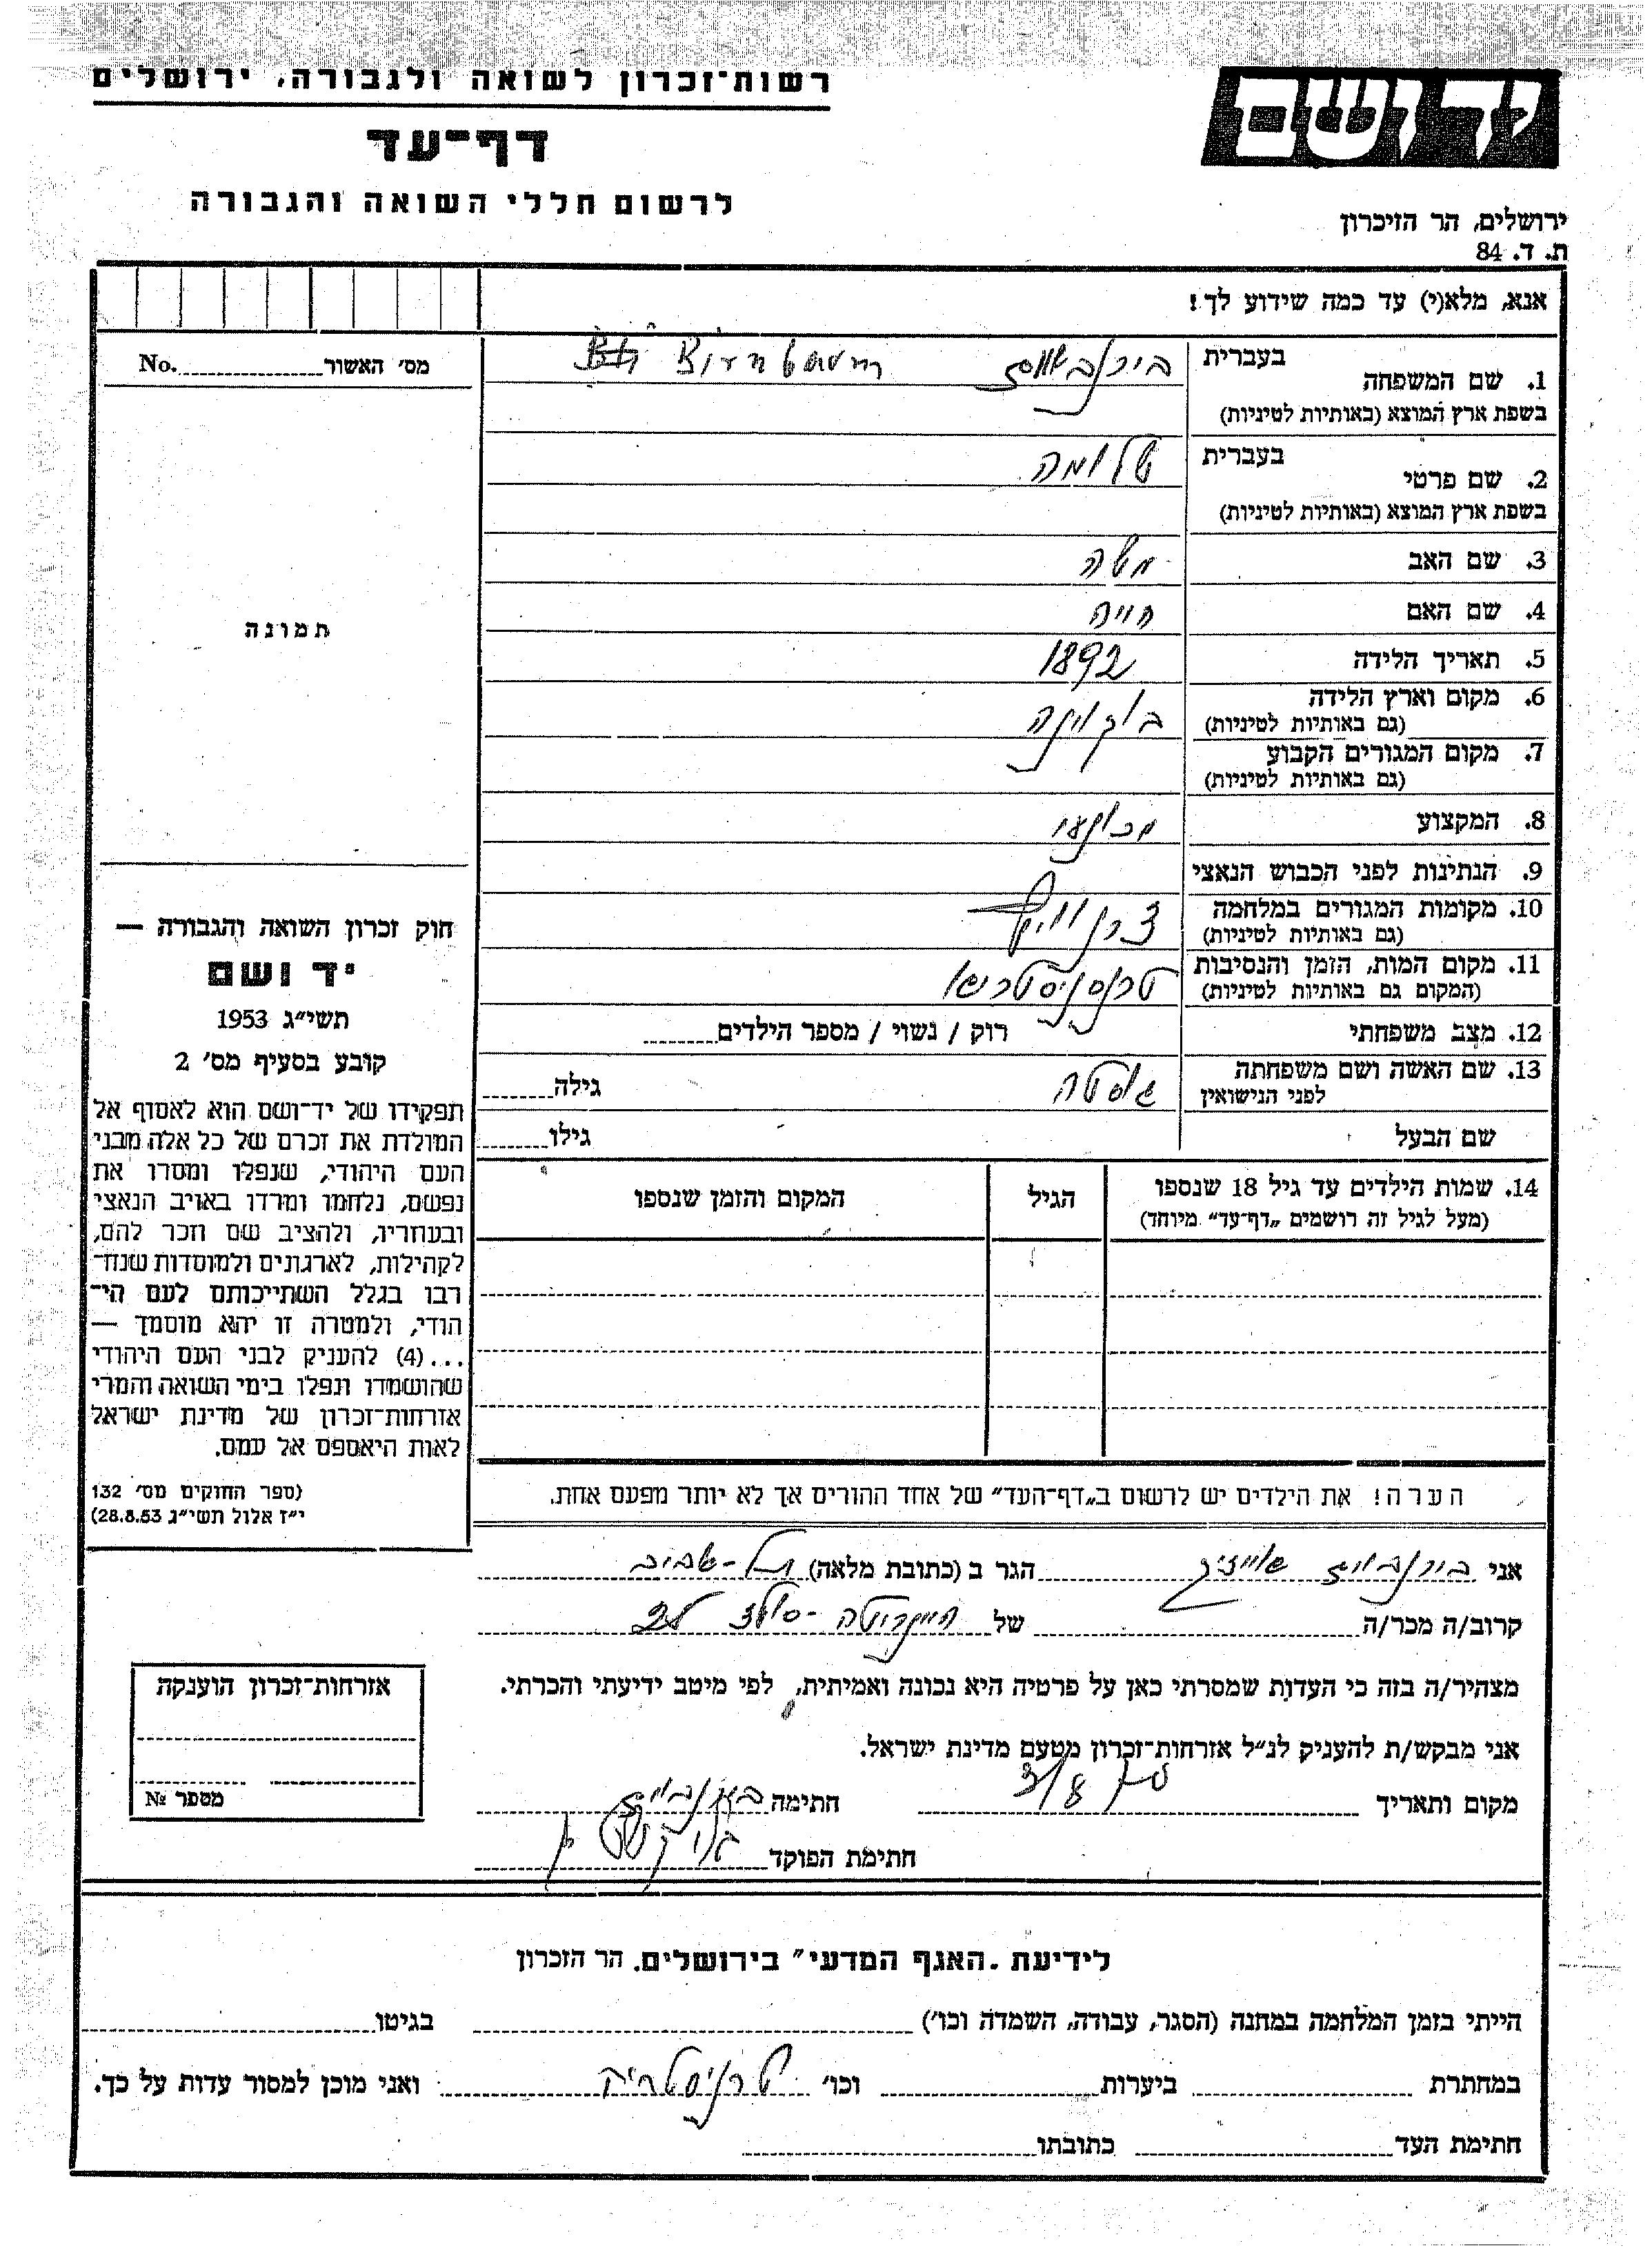 רשות־זכרון לשואה ולגבורה, ירושלים
יד ושם
דף־עד
לרשום חללי השואה והגבורה
ירושלים, הר הזיכרון
ת. ד. 84
אנא, מלא(י) עד כמה שידוע לך!
מס׳ האשור No.
1. שם המשפחה
בעברית
Birnbaum
בשפת ארץ המוצא (באותיות לטיניות)
2. שם פרטי
בעברית
שלומה
בשפת ארץ המוצא (באותיות לטיניות)
3. שם האב משה
4. שם האם חייה
תמונה
5. תאריך הלידה 1892
6. מקום וארץ הלידה
(גם באותיות לטיניות)
בוקוינה
7. מקום המגורים הקבוע
(גם באותיות לטיניות)
8. המקצוע מכונאי
9. הנתינות לפני הכבוש הנאצי
10. מקומות המגורים במלחמה
(גם באותיות לטיניות)
11. מקום המות, הזמן והנסיבות
(המקום גם באותיות לטיניות)
12. מצב משפחתי רוק / נשוי / מספר הילדים
13. שם האשה ושם משפחתה
לפני הנישואין
גוסטה
גילה
שם הבעל גילו
14. שמות הילדים עד גיל 18 שנספו
(מעל לגיל זה רושמים „דף־עד״ מיוחד)
הגיל
המקום והזמן שנספו
חוק זכרון השואה והגבורה —
יד ושם
תשי״ג 1953
קובע בסעיף מס׳ 2
תפקידו של יד־ושם הוא לאסוף אל
המולדת את זכרם של כל אלה מבני
העם היהודי, שנפלו ומסרו את
נפשם, נלחמו ומרדו באויב הנאצי
ובעוזריו, ולהציב שם וזכר להם,
לקהילות, לארגונים ולמוסדות שנח־
רבו בגלל השתייכותם לעם הי־
הודי, ולמטרה זו יהא מוסמך —
...(4) להעניק לבני העם היהודי
שהושמדו ונפלו בימי השואה והמרי
אזרחות־זכרון של מדינת ישראל
לאות היאספם אל עמם.
(ספר החוקים מס׳ 132
י״ז אלול תשי״ג 28.8.53)
הערה! את הילדים יש לרשום ב„דף־העד״ של אחד ההורים אך לא יותר מפעם אחת.
אני הגר ב (כתובת מלאה) תל-אביב
קרוב/ה מכר/ה של
מצהיר/ה בזה כי העדות שמסרתי כאן על פרטיה היא נכונה ואמיתית, לפי מיטב ידיעתי והכרתי.
אני מבקש/ת להעניק לנ״ל אזרחות־זכרון מטעם מדינת ישראל.
מקום ותאריך חתימה
חתימת הפוקד
אזרחות־זכרון הוענקה
מספר №
לידיעת „האגף המדעי״ בירושלים. הר הזכרון
הייתי בזמן המלחמה במחנה (הסגר, עבודה, השמדה וכו׳) בגיטו
במחתרת ביערות וכו׳ ואני מוכן למסור עדות על כך.
חתימת העד כתובתו